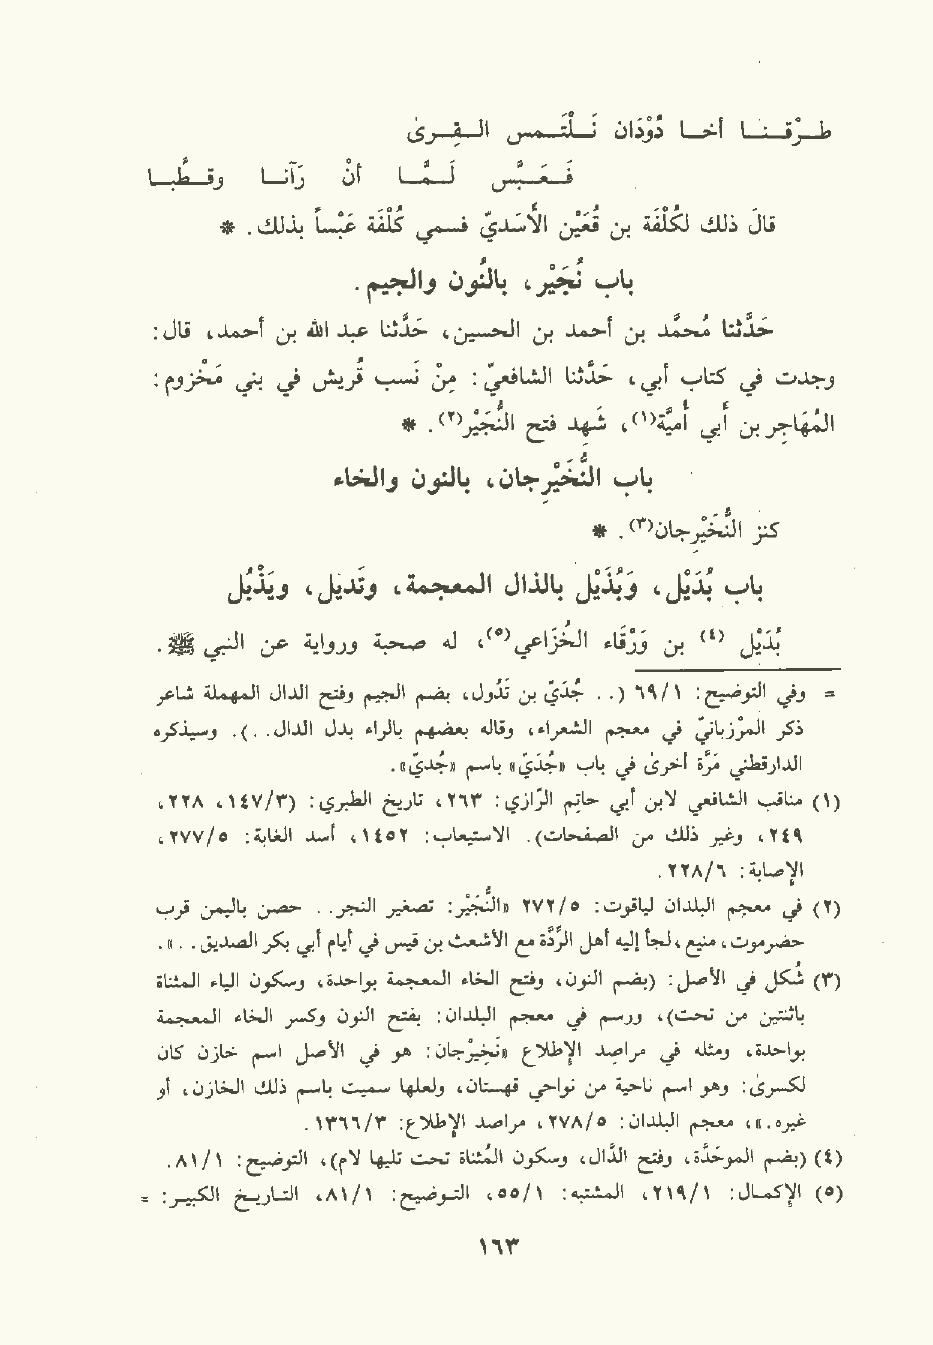 طـرْقـنـا أخـا دُوْدَان نَـلْتَـمـس الـقـِرىٰ
فـعَـبَّـس لَـمَّـا أنْ رَآنـا وقـطَّبـا
قالَ ذلك لكُلْفَة بن قُعَيْن الأسَديّ فسمي كُلْفَة عَبْساً بذلك. *
باب نُجَيْر، بالنُون والجيم.
حَدَّثنا مُحمَّد بن أحمد بن الحسين، حَدَّثنا عبد الله بن أحمد، قال:
وجدت في كتاب أبي، حَدَّثنا الشافعيّ: مِنْ نسب قُريش في بني مَخْزوم:
المُهَاجِر بن أبي أُميّة(١)، شَهِد فتح النُّجَيْر(٢). *
باب النُّخَيْرِجان، بالنون والخاء
كنز النُّخَيْرِجان(٣). *
باب بُدَيْل، وَبُذَيْل بالذال المعجمة، وتَديل، ويَذْبُل
بُدَيْل (٤) بن وَرْقَاء الخُزاعي(٥)، له صحبة ورواية عن النبي ﷺ.
= وفي التوضيح: ٦٩/١ (. . جُدَيّ بن تَدُول، بضم الجيم وفتح الدال المهملة شاعر
ذكر المرْزبانيّ في معجم الشعراء، وقاله بعضهم بالراء بدل الدال. .). وسيذكره
الدارقطني مَرَّة أخرىٰ في باب «جُدَيّ» باسم «جُديّ».
(١) مناقب الشافعي لابن أبي حاتِم الرّازي: ٢٦٣، تاريخ الطبري: (١٤٧/٣، ٢٢٨،
٢٤٩، وغير ذلك من الصفحات). الاستيعاب: ١٤٥٢، أسد الغابة: ٢٧٧/٥،
الإصابة: ٢٢٨/٦.
(٢) في معجم البلدان لياقوت: ٢٧٢/٥ «النُّجَيْر: تصغير النجر. . حصن باليمن قرب
حضرموت، منيع، لجأ إليه أهل الرِّدَّة مع الأشعث بن قيس في أيام أبي بكر الصديق. .».
(٣) شُكل في الأصل: (بضم النون، وفتح الخاء المعجمة بواحدة، وسكون الياء المثناة
باثنتين من تحت)، ورسم في معجم البلدان: بفتح النون وكسر الخاء المعجمة
بواحدة، ومثله في مراصِد الإطلاع «نَخِيْرجان: هو في الأصل اسم خازن كان
لكسرىٰ: وهو اسم ناحية من نواحي قهستان، ولعلها سميت باسم ذلك الخازن، أو
غيره.»، معجم البلدان: ٢٧٨/٥، مراصد الإطلاع: ١٣٦٦/٣.
(٤) (بضم الموحَّدة، وفتح الدَّال، وسكون المُثناة تحت تليها لام)، التوضيح: ٨١/١.
(٥) الإكمـال: ٢١٩/١، المشتبه: ٥٥/١، التـوضيح: ٨١/١، التـاريـخ الكبيـر: =
١٦٣